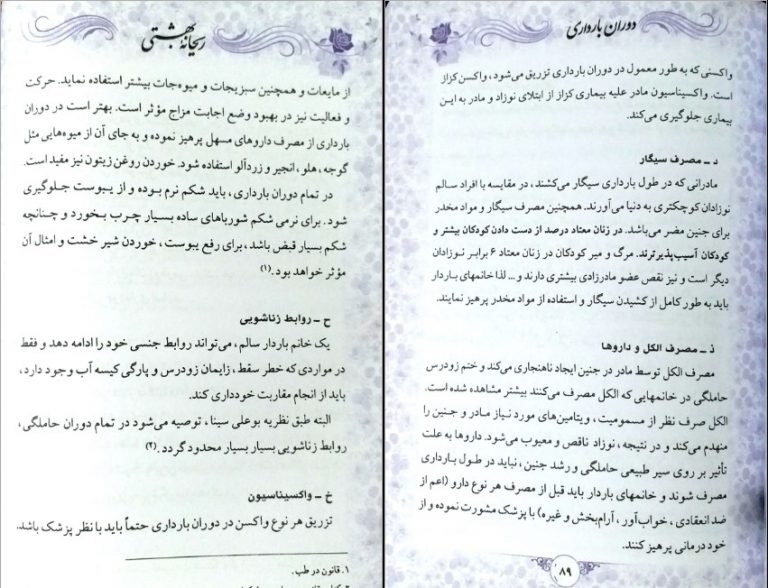 ریحانهٔ بهشتی
از مایعات و همچنین سبزیجات و میوه‌جات بیشتر استفاده نماید. حرکت
و فعالیت نیز در بهبود وضع اجابت مزاج مؤثر است. بهتر است در دوران
بارداری از مصرف داروهای مسهل پرهیز نموده و به جای آن از میوه‌هایی مثل
گوجه، هلو، انجیر و زردآلو استفاده شود. خوردن روغن زیتون نیز مفید است.
در تمام دوران بارداری، باید شکم نرم بوده و از یبوست جلوگیری
شود. برای نرمی شکم شورباهای ساده بسیار چرب بخورد و چنانچه
شکم بسیار قبض باشد، برای رفع یبوست، خوردن شیر خشت و امثال آن
مؤثر خواهد بود.(۱)
ح ـ روابط زناشویی
یک خانم باردار سالم، می‌تواند روابط جنسی خود را ادامه دهد و فقط
در مواردی که خطر سقط، زایمان زودرس و پارگی کیسه آب وجود دارد،
باید از انجام مقاربت خودداری کند.
البته طبق نظریه بوعلی سینا، توصیه می‌شود در تمام دوران حاملگی،
روابط زناشویی بسیار بسیار محدود گردد.(۲)
خ ـ واکسیناسیون
تزریق هر نوع واکسن در دوران بارداری حتماً باید با نظر پزشک باشد.
۱. قانون در طب.
دوران بارداری
واکسنی که به طور معمول در دوران بارداری تزریق می‌شود، واکسن کزاز
است. واکسیناسیون مادر علیه بیماری کزاز از ابتلای نوزاد و مادر به این
بیماری جلوگیری می‌کند.
د ـ مصرف سیگار
مادرانی که در طول بارداری سیگار می‌کشند، در مقایسه با افراد سالم
نوزادان کوچکتری به دنیا می‌آورند. همچنین مصرف سیگار و مواد مخدر
برای جنین مضر می‌باشد. در زنان معتاد درصد از دست دادن کودکان بیشتر و
کودکان آسیب‌پذیرترند. مرگ و میر کودکان در زنان معتاد ۶ برابر نوزادان
دیگر است و نیز نقص عضو مادرزادی بیشتری دارند و... لذا خانمهای باردار
باید به طور کامل از کشیدن سیگار و استفاده از مواد مخدر پرهیز نمایند.
ذ ـ مصرف الکل و داروها
مصرف الکل توسط مادر در جنین ایجاد ناهنجاری می‌کند و ختم زودرس
حاملگی در خانمهایی که الکل مصرف می‌کنند بیشتر مشاهده شده است.
الکل صرف نظر از مسمومیت، ویتامین‌های مورد نیاز مادر و جنین را
منهدم می‌کند و در نتیجه، نوزاد ناقص و معیوب می‌شود. داروها به علت
تأثیر بر روی سیر طبیعی حاملگی و رشد جنین، نباید در طول بارداری
مصرف شوند و خانمهای باردار باید قبل از مصرف هر نوع دارو (اعم از
ضد انعقادی، خواب‌آور، آرام‌بخش و غیره) با پزشک مشورت نموده و از
خود درمانی پرهیز کنند.
۸۹